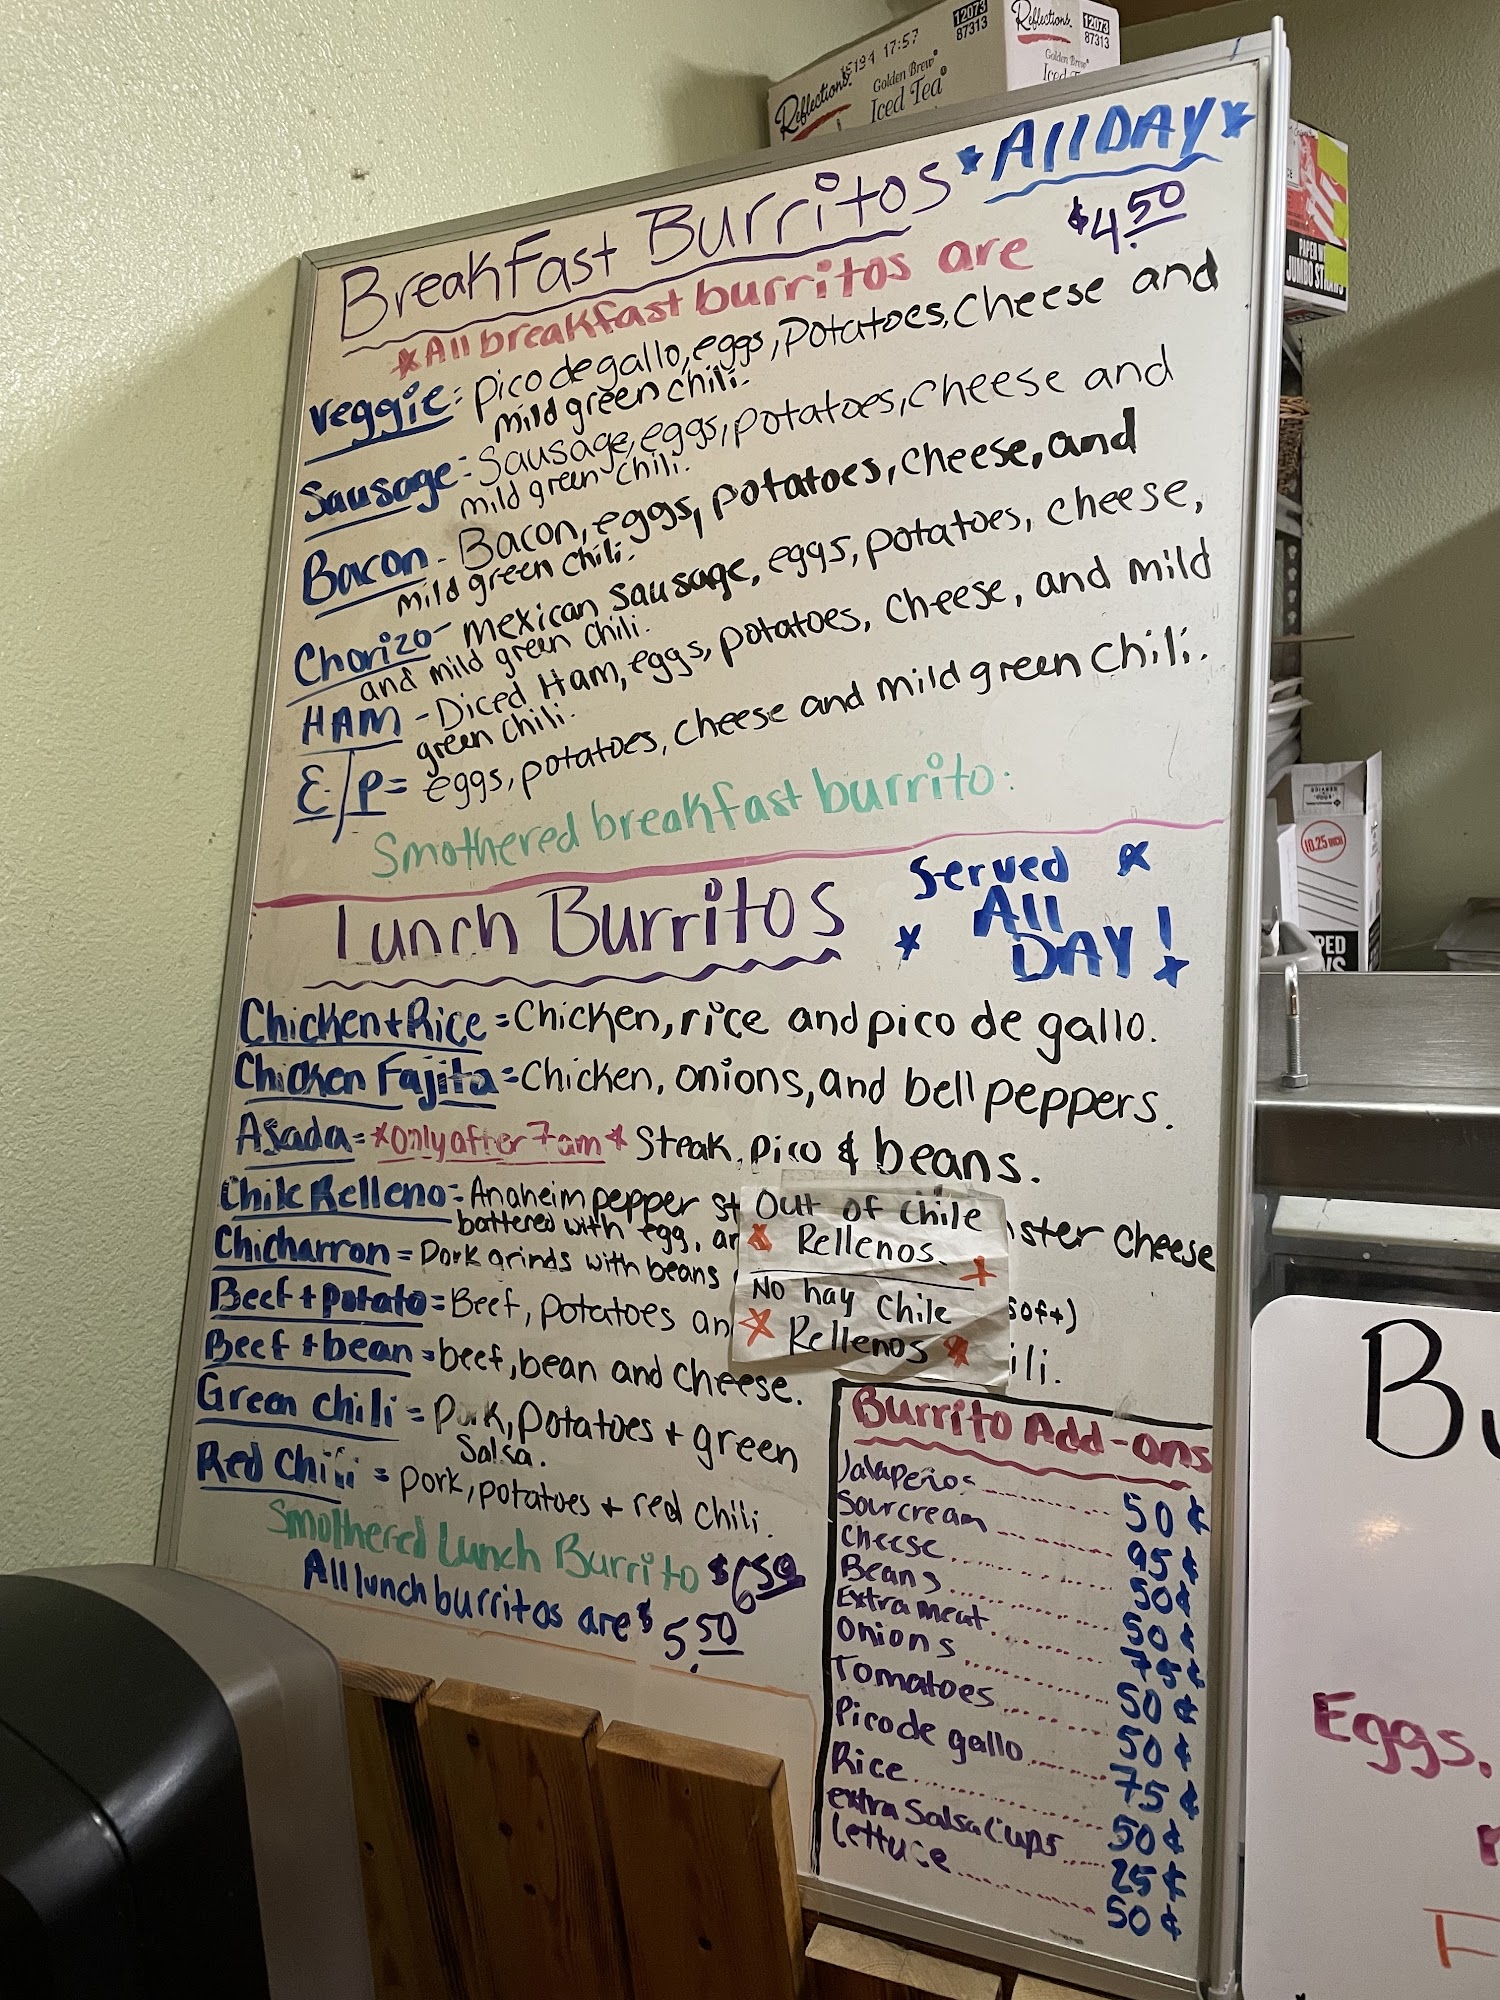 12073
87313
Reflections
12073
87313
15194 17:57
Golden Brew
Iced Tea
Reflections
Golden Brew
Iced T
Breakfast Burritos *All DAY*
*All breakfast burritos are $4.50
Veggie: Pico de gallo, eggs, Potatoes, cheese and
mild green chili.
Sausage: Sausage, eggs, potatoes, cheese and
mild green chili.
Bacon - Bacon, eggs, potatoes, cheese, and
mild green chili.
Chorizo - Mexican sausage, eggs, potatoes, cheese,
and mild green chili.
HAM - Diced Ham, eggs, potatoes, cheese, and mild
green chili.
E/P = eggs, potatoes, cheese and mild green chili.
Smothered breakfast burrito:
Lunch Burritos
Served *
* All
DAY! *
Chicken + Rice = Chicken, rice and pico de gallo.
Chicken Fajita = Chicken, onions, and bell peppers.
Asada = *Only after 7am* Steak, pico & beans.
Chile Relleno = Anaheim pepper st ster cheese
battered with egg, an
Chicharron = Pork grinds with beans soft)
Beef + potato = Beef, potatoes an ili.
Beef + bean = beef, bean and cheese.
Green chili = Pork, Potatoes + green
Salsa.
Red Chili = pork, potatoes + red chili.
Smothered Lunch Burrito $6.50
All lunch burritos are $5.50
Out of chile
Rellenos.
No hay chile
Rellenos
Burrito Add-ons
Jalapeños 50¢
Sour cream 95¢
Cheese 50¢
Beans 50¢
Extra meat 75¢
Onions 50¢
Tomatoes 50¢
Pico de gallo 75¢
Rice 50¢
extra Salsa Cups 25¢
Lettuce 50¢
JUMBO
10.25 INCH
Eggs,